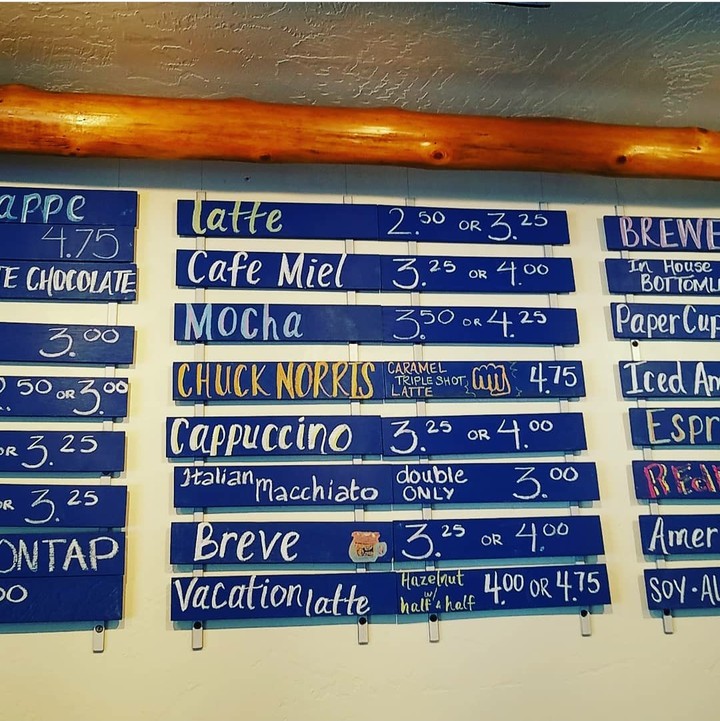 appe
4.75
TE CHOCOLATE
3.00
2.50 OR 3.00
OR 3.25
OR 3.25
ONTAP
00
latte 2.50 OR 3.25
Cafe Miel 3.25 OR 4.00
Mocha 3.50 OR 4.25
CHUCK NORRIS CARAMEL TRIPLE SHOT LATTE 4.75
Cappuccino 3.25 OR 4.00
Italian Macchiato double ONLY 3.00
Breve 3.25 OR 4.00
Vacation latte Hazelnut w/ half & half 4.00 OR 4.75
BREWE
In House
BOTTOML
Paper Cup
Iced Am
Espr
Amer
SOY·AL